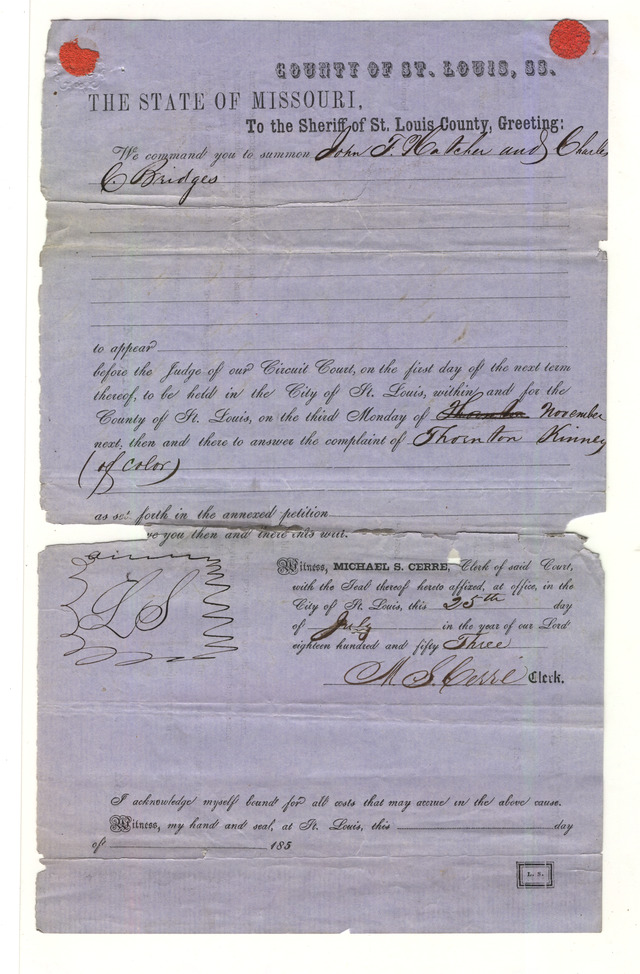 COUNTY OF ST. LOUIS, SS.
THE STATE OF MISSOURI,
To the Sheriff of St. Louis County, Greeting:
We command you to summon John F. Hatcher and Charles
C Bridges
to appear
before the Judge of our Circuit Court, on the first day of the next term
thereof, to be held in the City of St. Louis, within and for the
County of St. Louis, on the third Monday of November
next; then and there to answer the complaint of Thornton Kinney
(of color)
as set forth in the annexed petition
ve you then and there this writ.
L S
Witness, MICHAEL S. CERRE, Clerk of said Court,
with the Seal thereof hereto affixed, at office, in the
City of St. Louis, this 25th day
of July in the year of our Lord
eighteen hundred and fifty Three
M. S. Cerré Clerk.
I acknowledge myself bound for all costs that may accrue in the above cause.
Witness, my hand and seal, at St. Louis, this day
of 185
L. S.